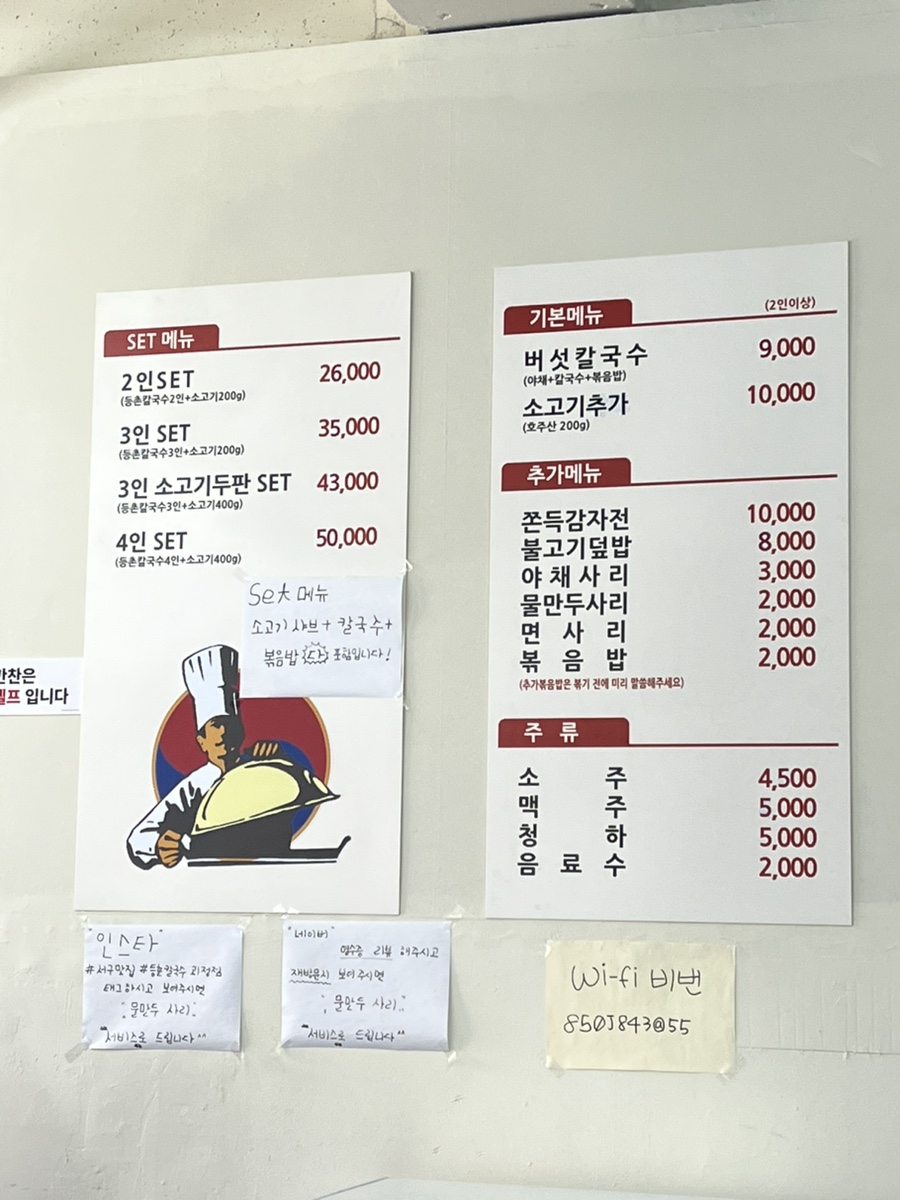 SET 메뉴
2인SET 26,000
(등촌칼국수2인+소고기200g)
3인 SET 35,000
(등촌칼국수3인+소고기200g)
3인 소고기두판 SET 43,000
(등촌칼국수3인+소고기400g)
4인 SET 50,000
(등촌칼국수4인+소고기400g)
Set 메뉴
소고기 샤브 + 칼국수 +
볶음밥 다 포함입니다!
기본메뉴 (2인이상)
버섯칼국수 9,000
(야채+칼국수+볶음밥)
소고기추가 10,000
(호주산 200g)
추가메뉴
쫀득감자전 10,000
불고기덮밥 8,000
야채사리 3,000
물만두사리 2,000
면사리 2,000
볶음밥 2,000
(추가볶음밥은 볶기 전에 미리 말씀해주세요)
주류
소주 4,500
맥주 5,000
청하 5,000
음료수 2,000
반찬은
셀프 입니다
"인스타"
#서구맛집 #등촌칼국수
태그하시고 보여주시면
"물만두 사리"
"서비스로 드립니다^^
"네이버"
영수증 리뷰 해주시고
보여주시면
"물만두 사리"
"서비스로 드립니다^^
Wi-fi 비번
850J843@55